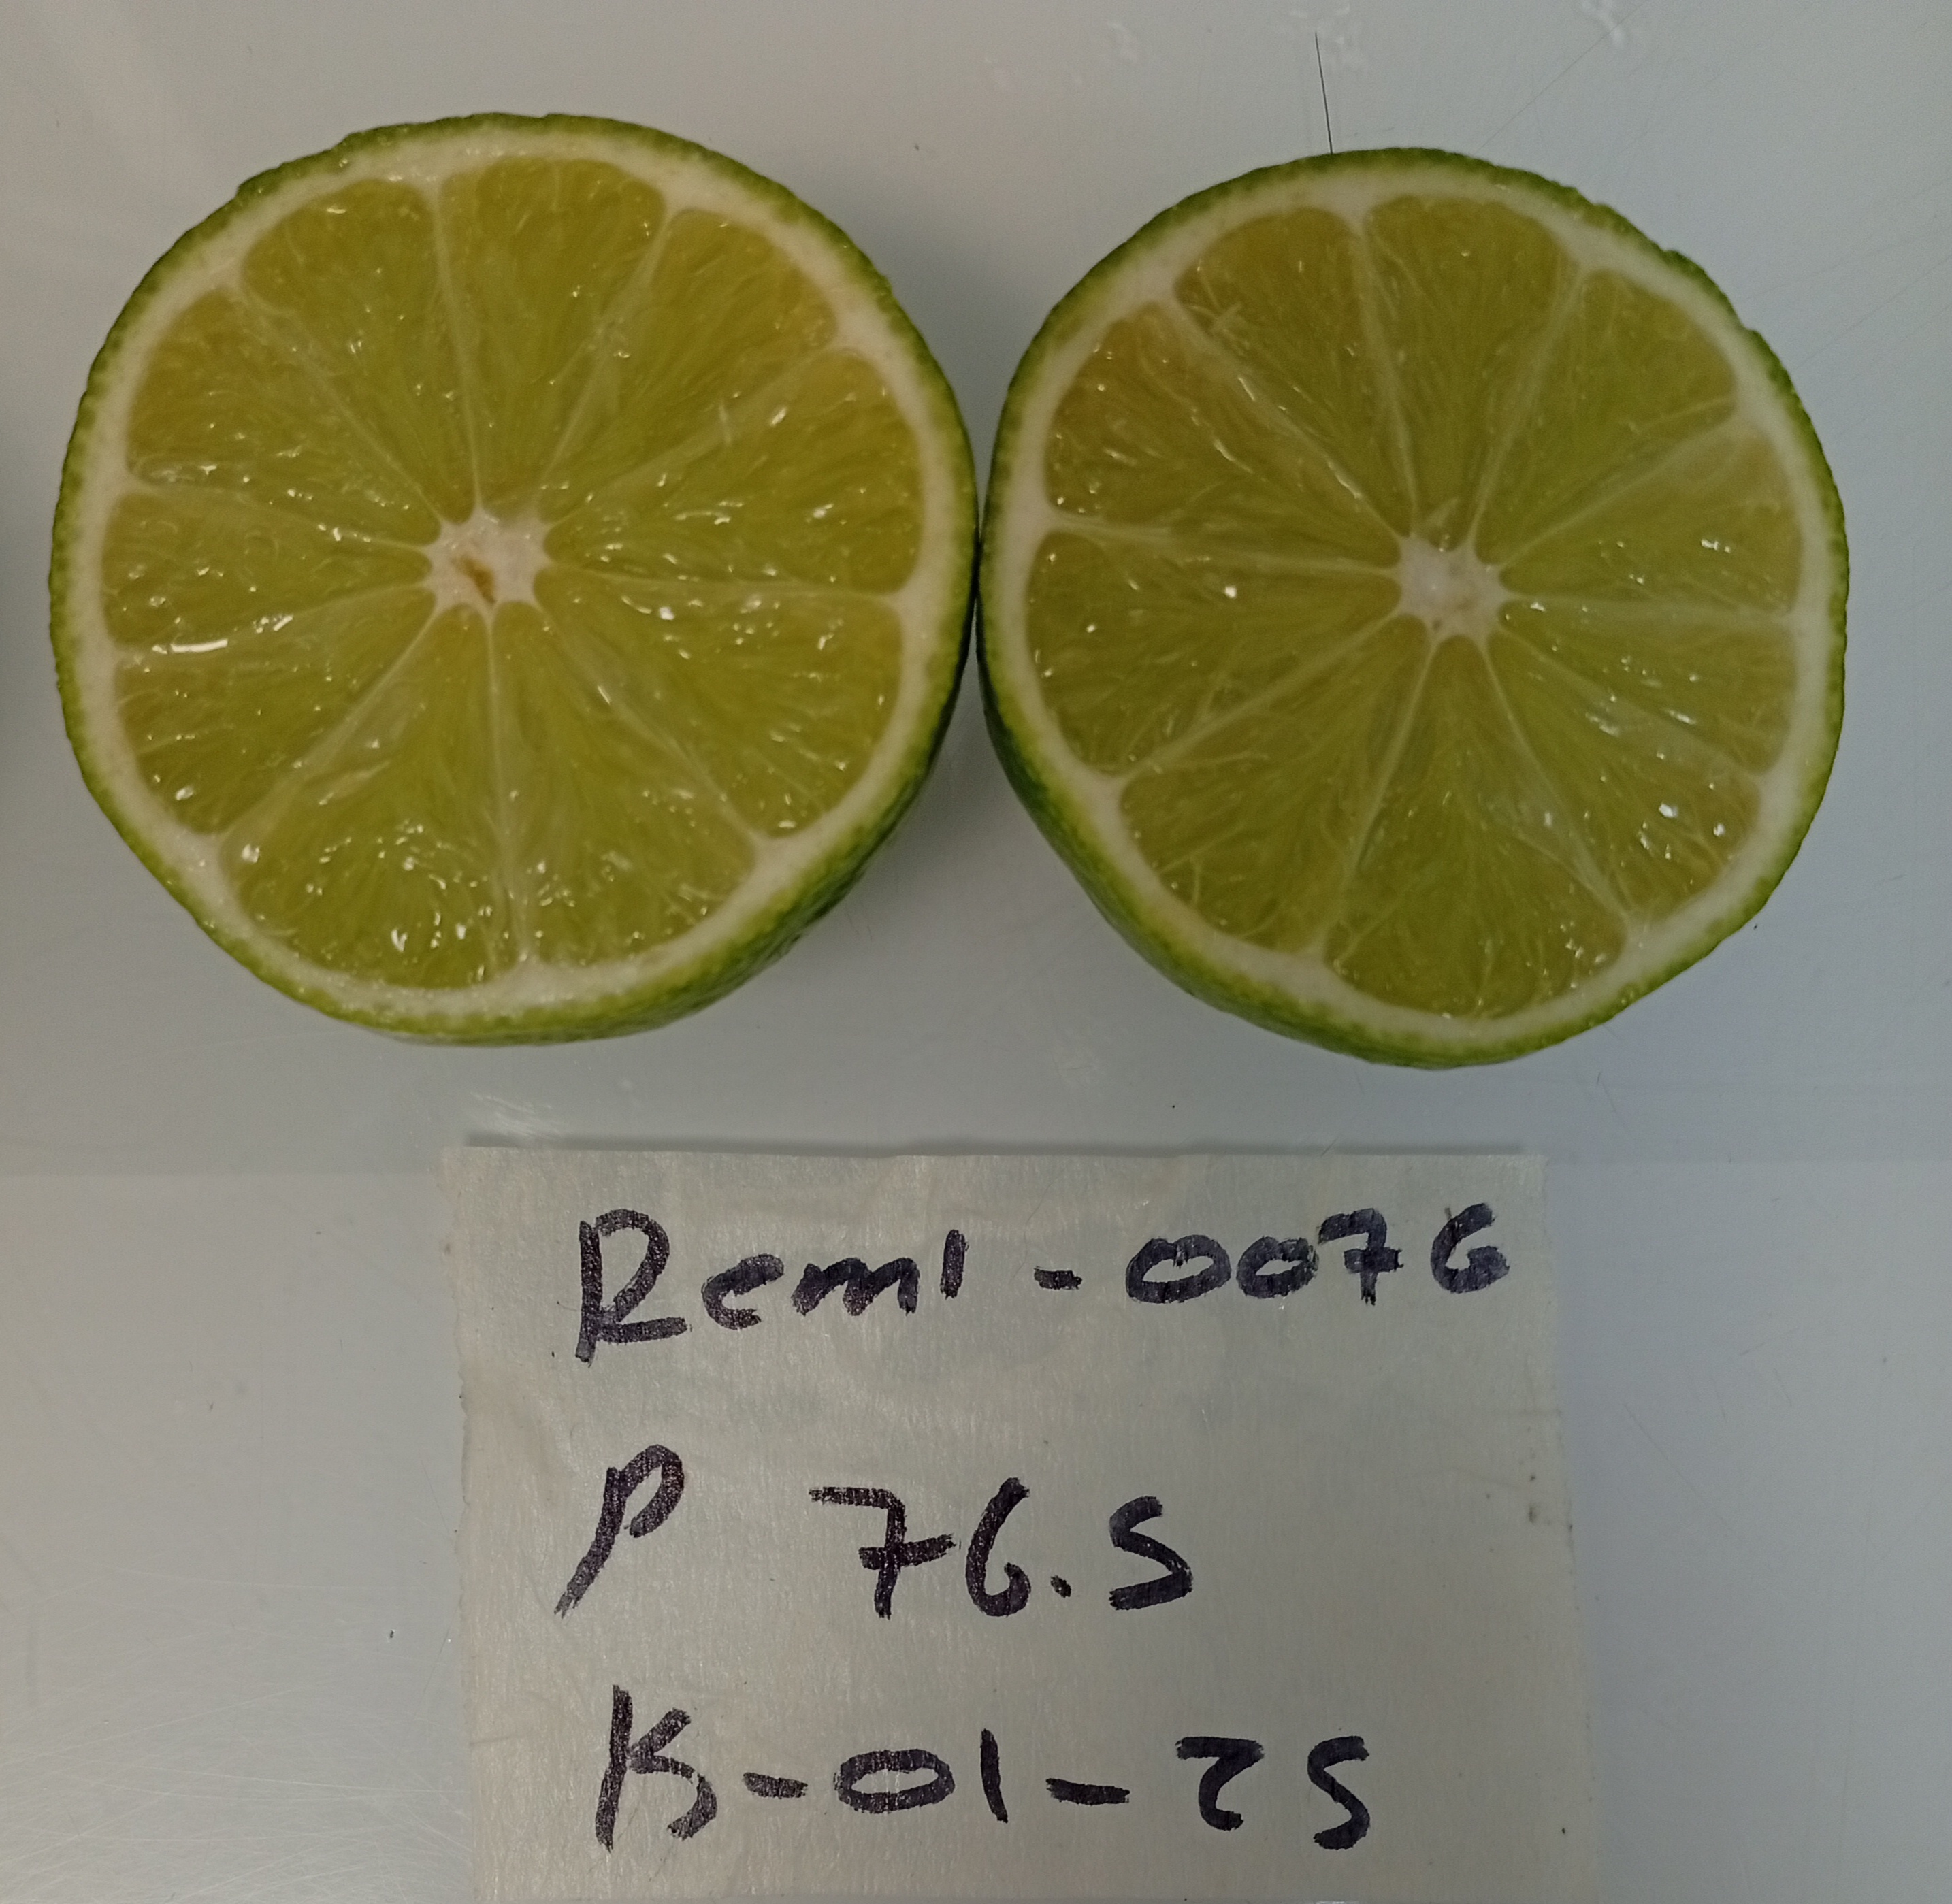 Remi-0076
P 76.5
15-01-25